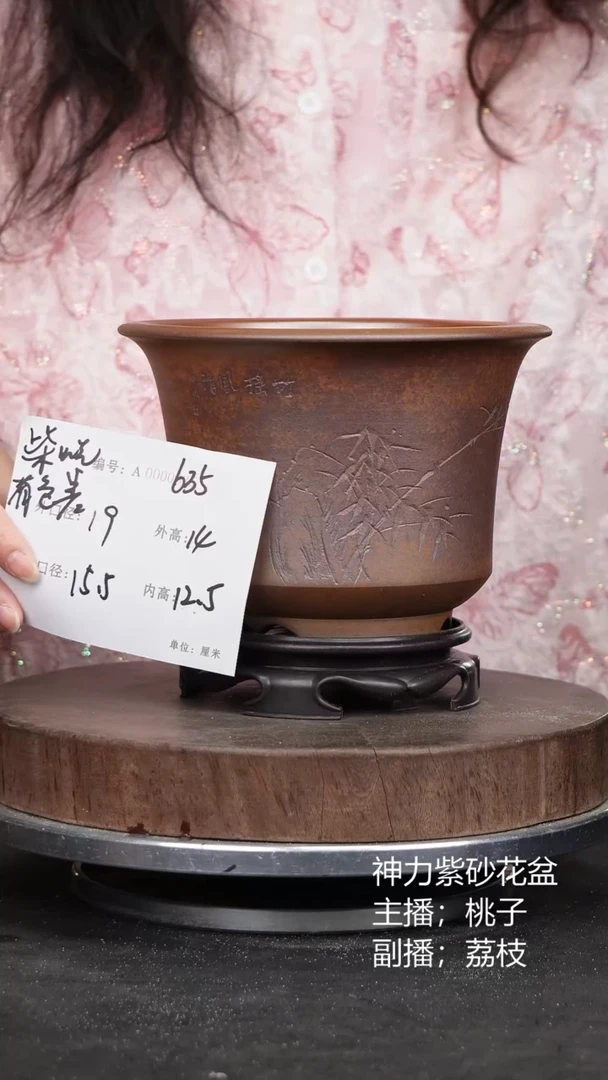 柴烧
有色差
编号：A 0000635
外口径：19
外高：14
口径：15.5
内高：12.5
单位：厘米
神力紫砂花盆
主播；桃子
副播；荔枝